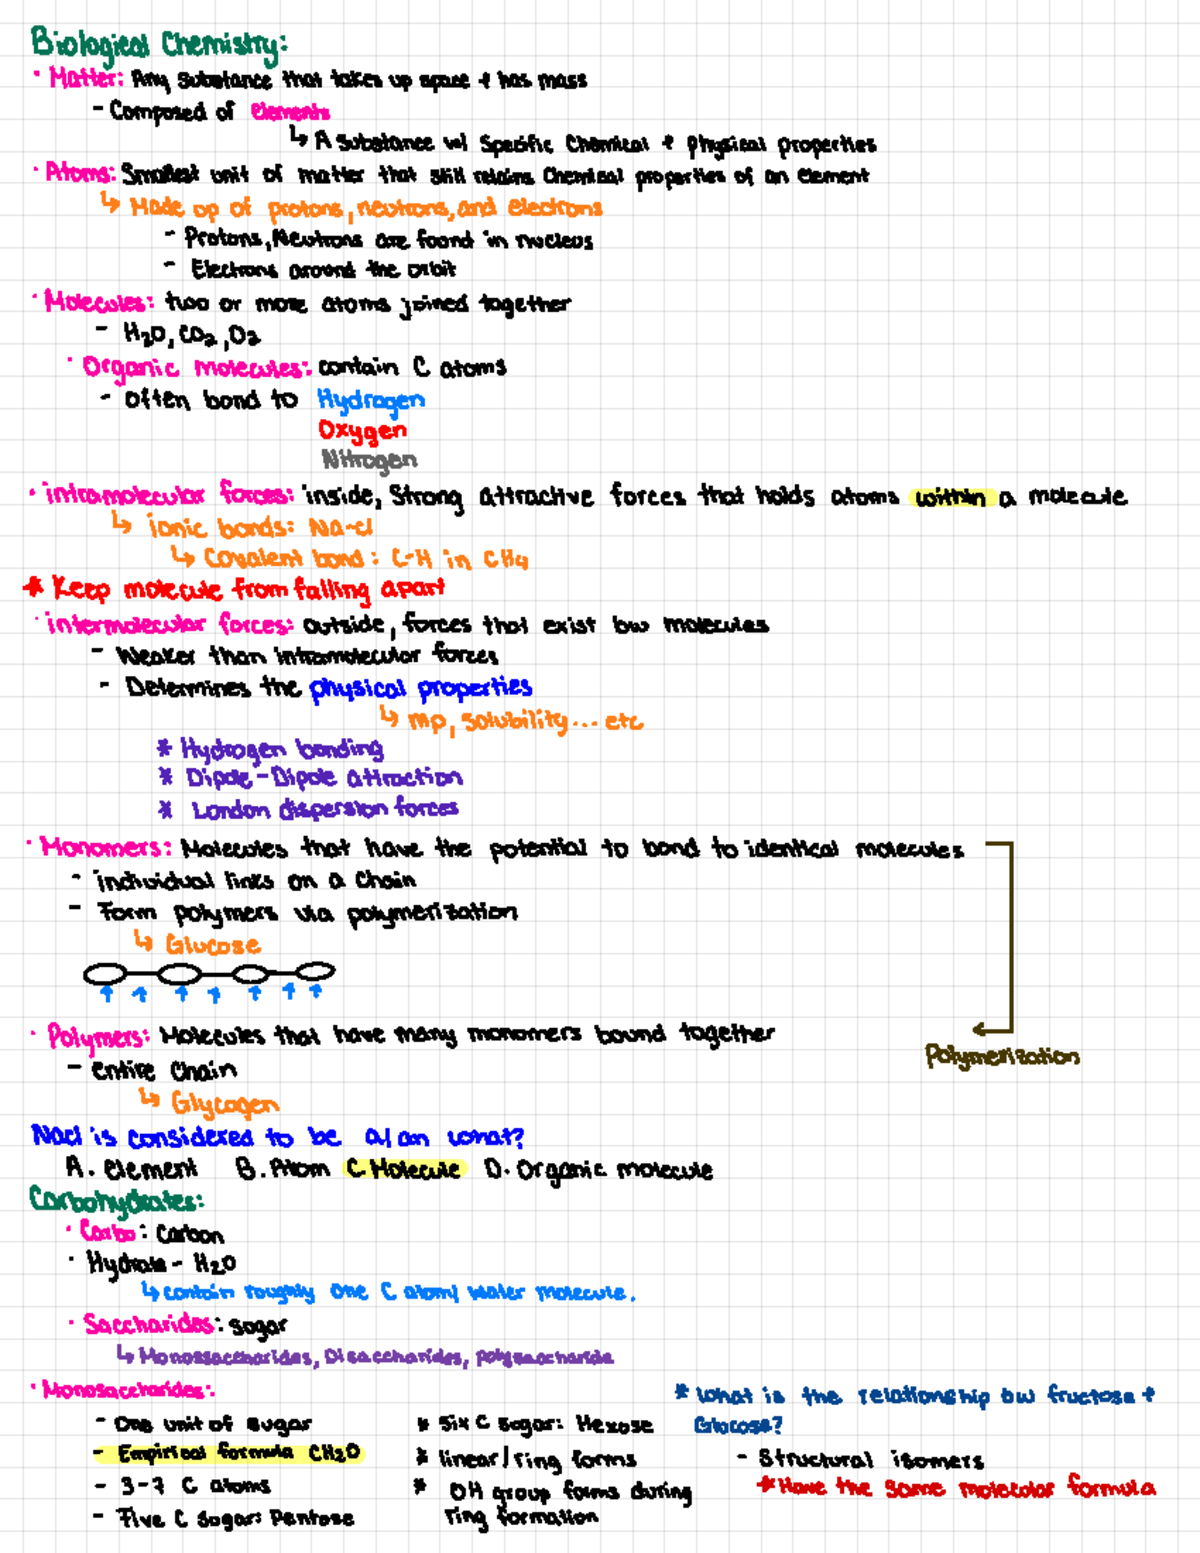 Biological Chemistry:
· Matter: Any substance that takes up space + has mass
- Composed of Elements
↳ A substance w/ specific chemical + physical properties
· Atoms: Smallest unit of matter that still retains chemical properties of an element
↳ Made up of protons, neutrons, and electrons
- Protons, Neutrons are found in nucleus
- Electrons around the orbit
· Molecules: two or more atoms joined together
- H₂O, CO₂, O₂
· Organic molecules: contain C atoms
- often bond to Hydrogen
Oxygen
Nitrogen
· intramolecular forces: inside, strong attractive forces that holds atoms within a molecule
↳ ionic bonds: Na-cl
↳ Covalent bond: C-H in CH₄
* Keep molecule from falling apart
· intermolecular forces: outside, forces that exist bw molecules
- Weaker than intramolecular forces
- Determines the physical properties
↳ mp, solubility... etc
* Hydrogen bonding
* Dipole-Dipole attraction
* London dispersion forces
· Monomers: Molecules that have the potential to bond to identical molecules
- individual links on a chain
- Form polymers via polymerization
↳ Glucose
· Polymers: Molecules that have many monomers bound together
Polymerization
- entire chain
↳ Glycogen
Nacl is considered to be a/an what?
A. Element B. Atom C. Molecule D. Organic molecule
Carbohydrates:
· Carbo: Carbon
· Hydrate - H₂O
↳ contain roughly one C atom/ water molecule.
· Saccharides: sugar
↳ Monossaccharides, Disaccharides, polysaccharide
· Monosaccharides:
- One unit of sugar
- Empirical formula CH₂O
- 3-7 C atoms
- Five C sugar: Pentose
* Six C sugar: Hexose
* linear/ring forms
* OH group forms during
ring formation
* What is the relationship bw fructose +
Glucose?
- Structural isomers
* Have the same molecular formula